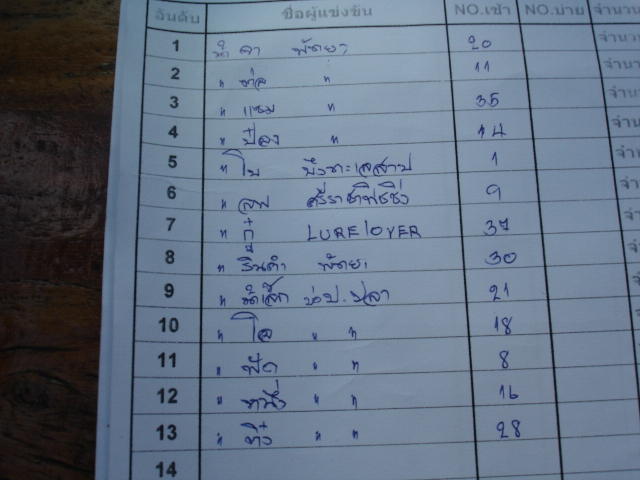 อันดับ ชื่อผู้แข่งขัน NO.เช้า NO.บ่าย จำนวน
1 น้า ดา พัทยา 20 จำนว
2 " " 11 จำนว
3 " แซม " 35 จำน
4 " ป๋อง " 14 จำน
5 " โบ บึงทะเลสาป 1 จำ
6 " ศรีราชาฟิชชิ่ง 9 จำ
7 " กู๋ LURElOVER 37 จำ
8 " รินดำ พัทยา 30 จ
9 " บ่อป.ปลา 21 จ
10 " โอ " " 18
11 " " " 8
12 " หนึ่ง " " 16
13 " " " 28
14